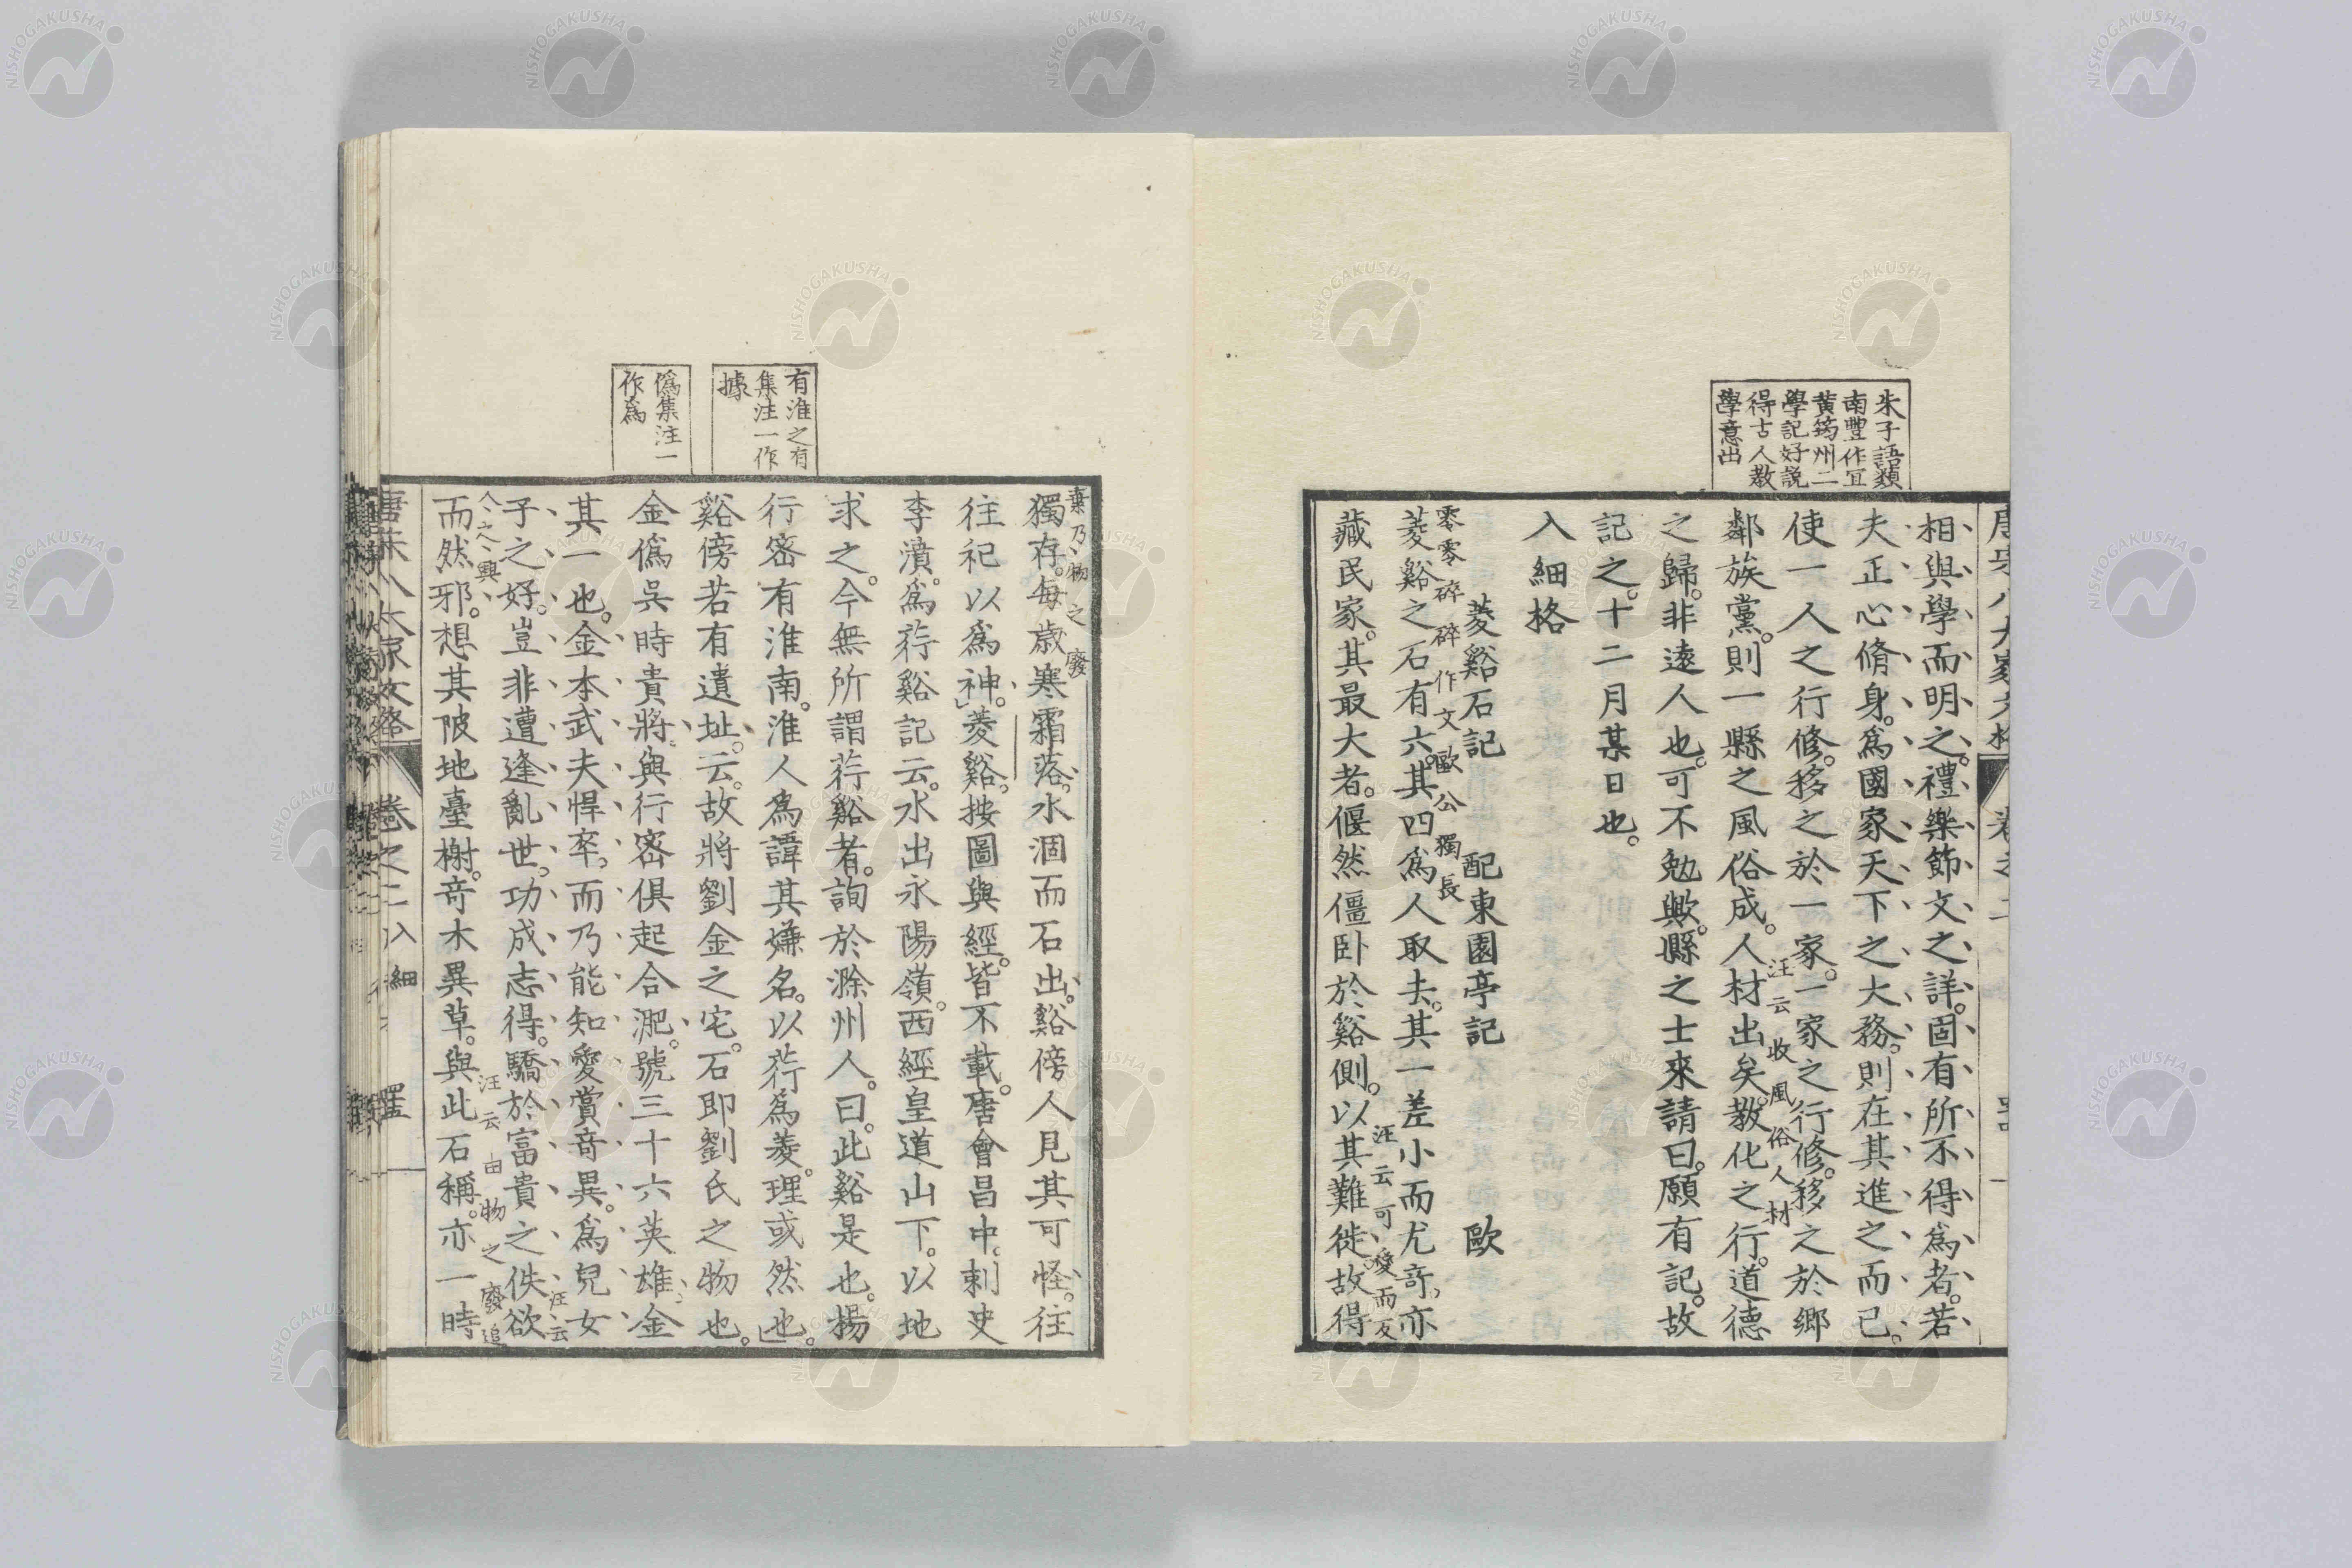 朱子語類
南豐作宜
黄筠州二
學記好説
得古人教
學意出
相與學而明之。禮樂節文之詳。固有所不得爲者。若
夫正心脩身。爲國家天下之大務。則在其進之而已。
使一人之行修。移之於一家。一家之行修。移之於鄉
汪云收風俗人材
鄰族黨。則一縣之風俗成。人材出矣。教化之行。道德
之歸。非遠人也。可不勉歟。縣之士來請曰。願有記。故
記之。十二月某日也。
入細格
菱谿石記 配東園亭記 歐
零零碎碎作文歐公獨長
菱谿之石有六。其四爲人取去。其一差小而尤奇。亦
汪云可愛而反
藏民家。其最大者。偃然僵卧於谿側。以其難徙。故得
有淮之有
集注一作
據
僞集注一
作爲
棄乃物之廢
獨存。每歲寒霜落。水涸而石出。谿傍人見其可怪。往
往祀以爲神。菱谿。按圖與經。皆不載。唐會昌中。刺史
李濆。爲荇谿記云。水出永陽嶺。西經皇道山下。以地
求之。今無所謂荇谿者。詢於滁州人。曰。此谿是也。楊
行密有淮南。淮人爲諱其嫌名。以荇爲菱。理或然也。
谿傍若有遺址。云。故將劉金之宅。石即劉氏之物也。
金僞吳時貴將。與行密俱起合淝。號三十六英雄。金
其一也。金本武夫悍卒。而乃能知愛賞奇異。爲兒女
汪云
子之好。豈非遭逢亂世。功成志得。驕於富貴之佚欲
人之興
汪云由物之廢追
而然邪。想其陂地臺榭。奇木異草。與此石稱。亦一時
唐宋八大家文格 卷之二 入細